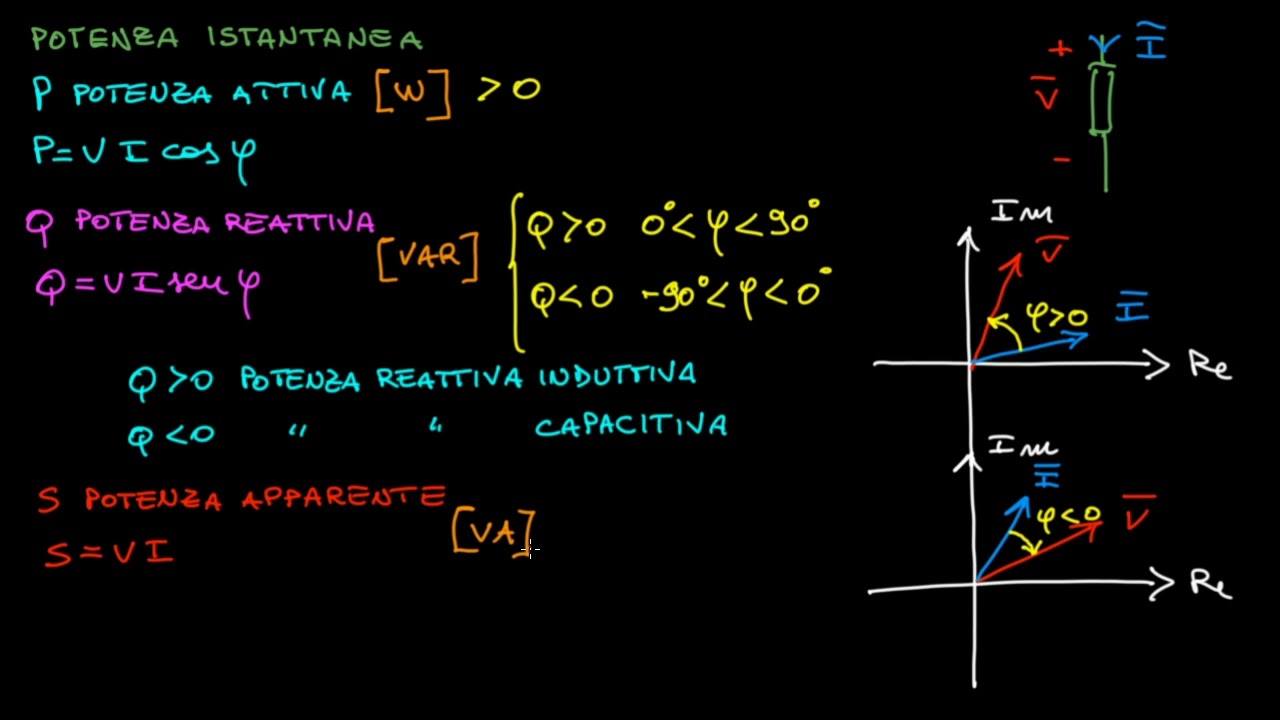 POTENZA ISTANTANEA
P POTENZA ATTIVA [W] >0
P=VI cosφ
Q POTENZA REATTIVA [VAR]
Q=VI senφ
{ Q>0 0°<φ<90°
Q<0 -90°<φ<0°
Q>0 POTENZA REATTIVA INDUTTIVA
Q<0 " " CAPACITIVA
S POTENZA APPARENTE [VA]
S=VI
+ Ĩ
V̅
-
Im
V̅
φ>0 I̅
Re
Im
I̅
φ<0 V̅
Re